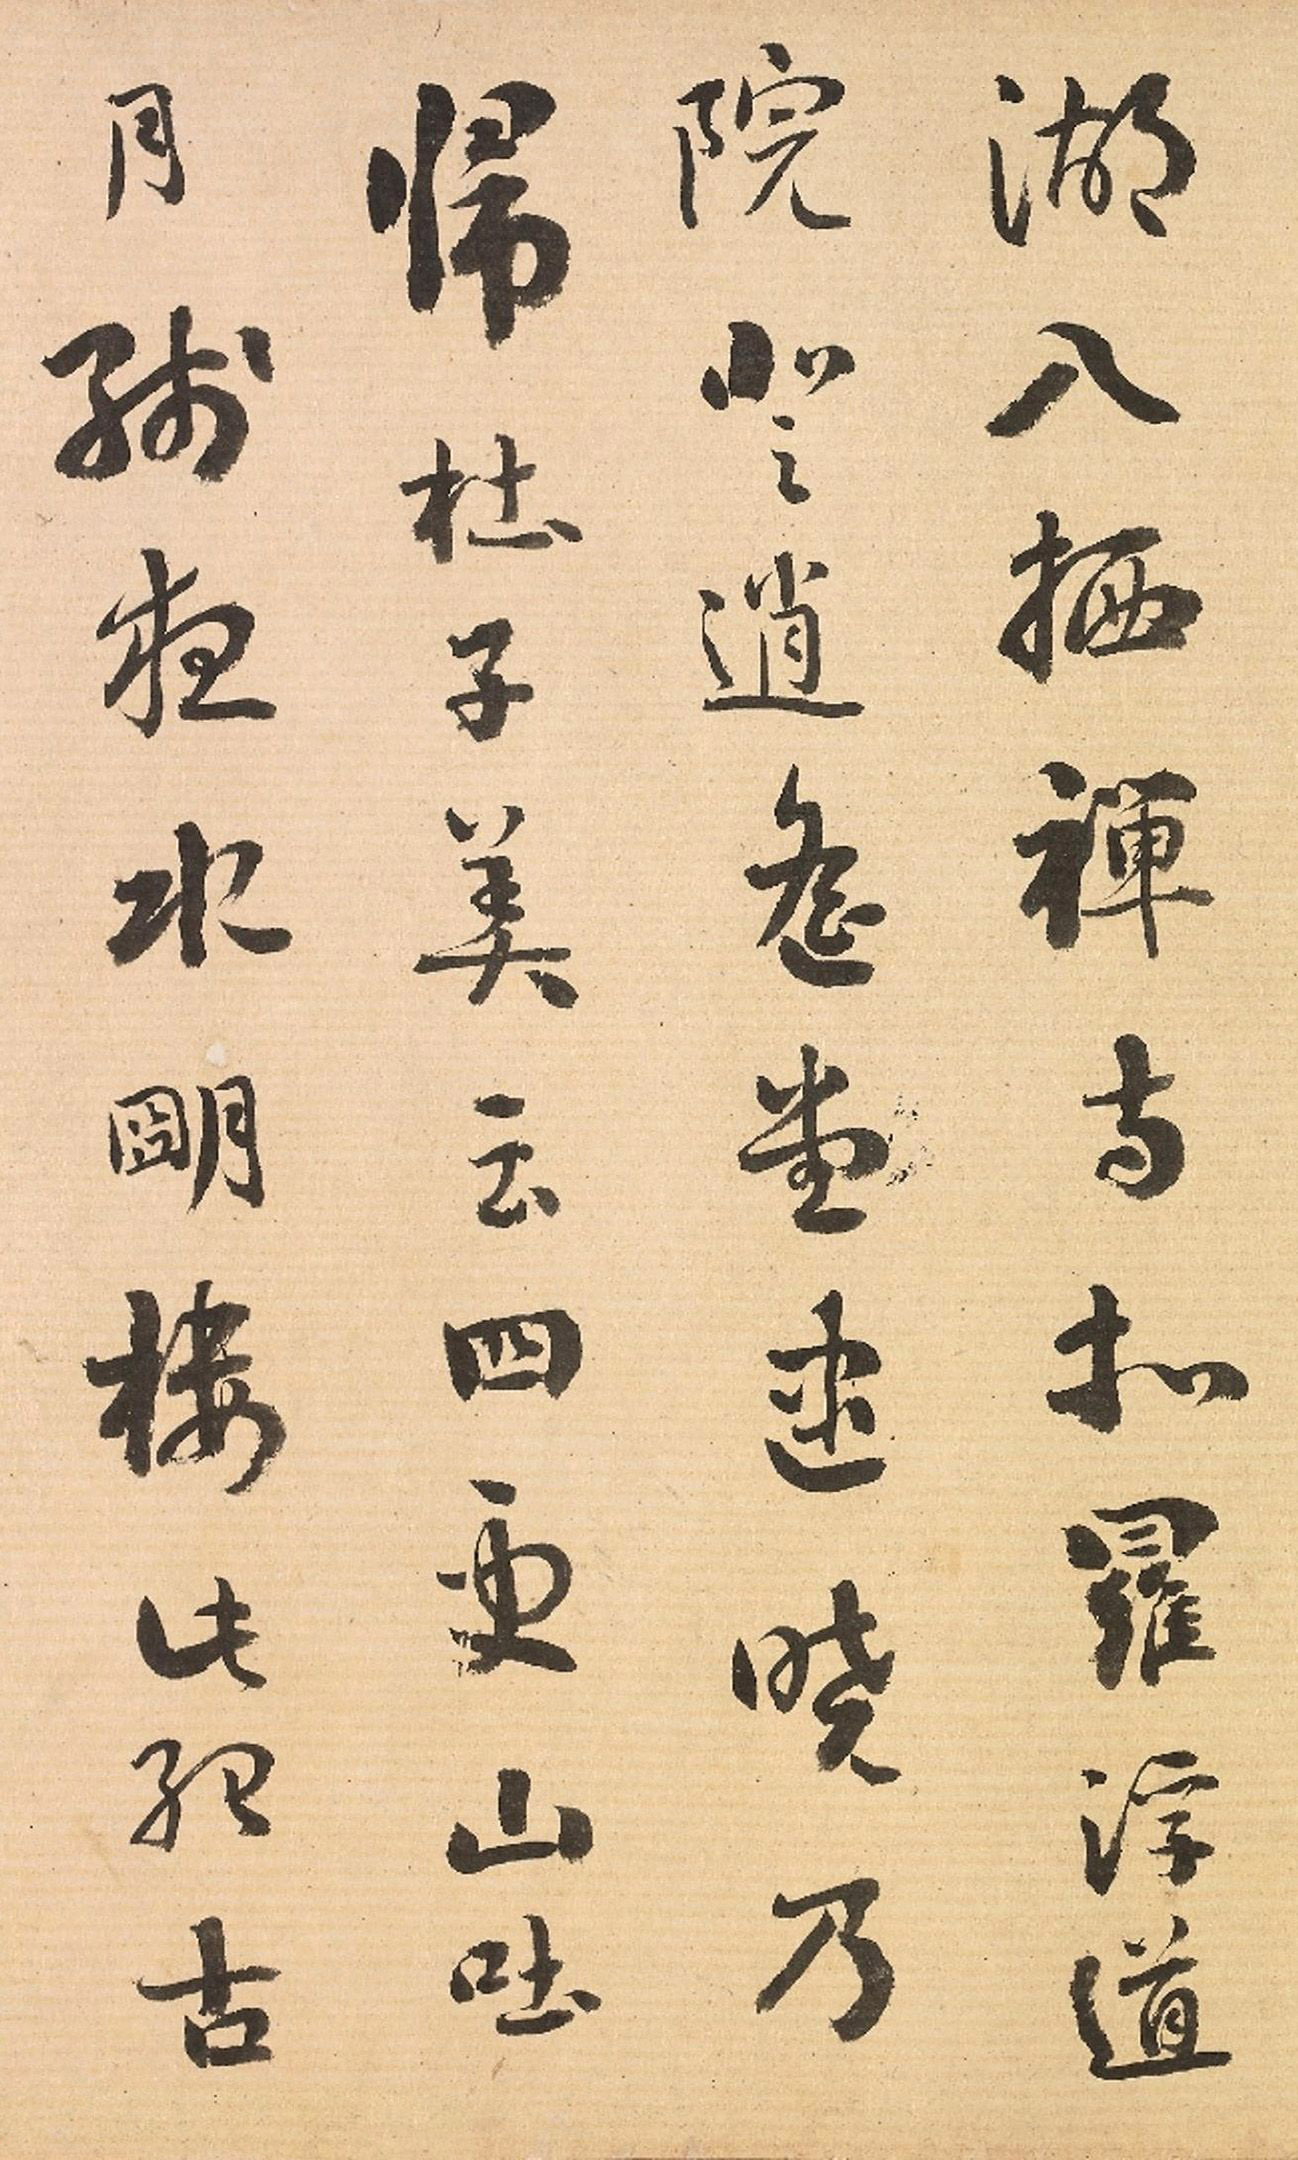 湖入栖禪寺扣羅浮道
院登逍遙堂逮曉乃
歸杜子美云四更山吐
月殘夜水明樓此殆古